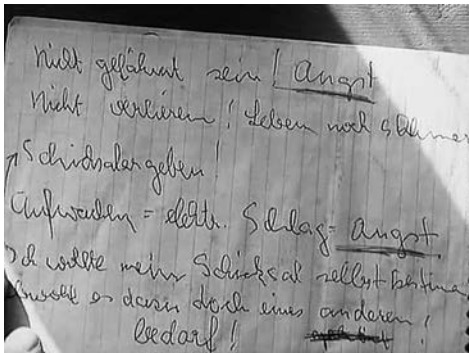 nicht gelähmt sein! Angst
nicht verlieren! Leben noch schlimmer
Schicksalergeben!
Aufwachen = elektr. Schlag = Angst
Ich wollte mein Schicksal selbst bestimmen
obwohl es dazu doch eines anderen
bedarf!